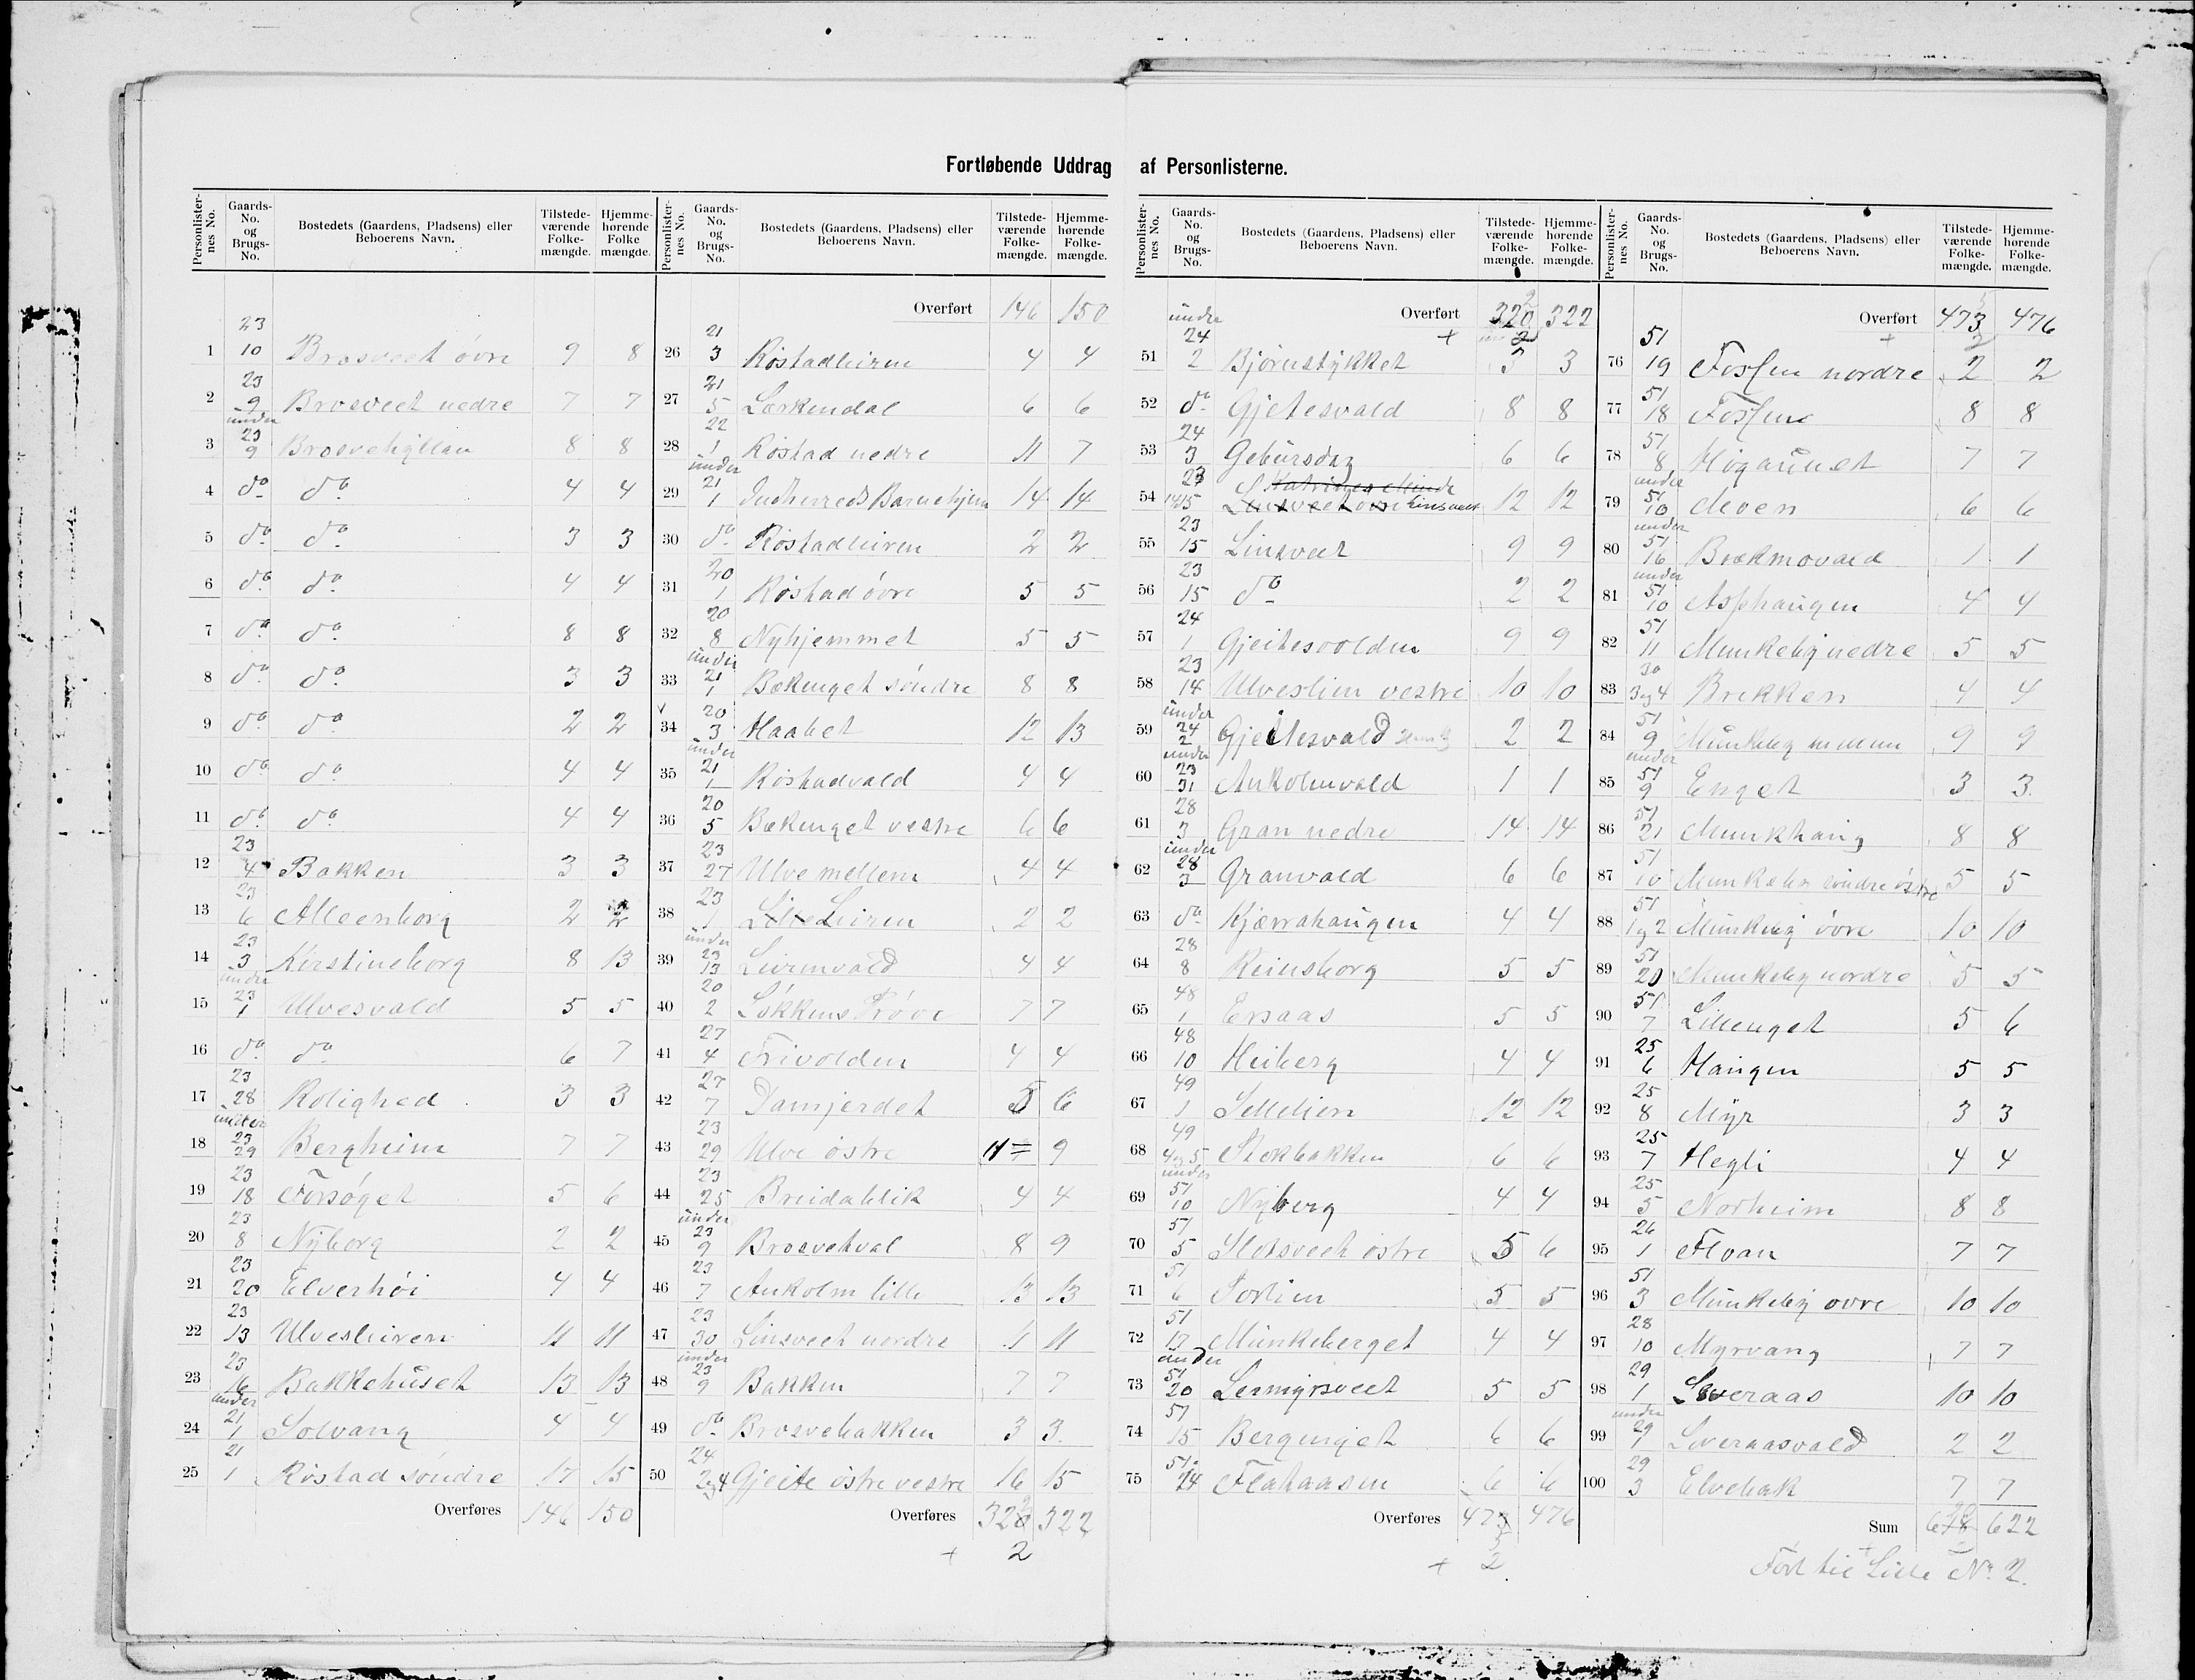 Fortløbende Uddrag af Personlisterne.
Personlister-nes No. Gaards-No. og Brugs-No. Bostedets (Gaardens, Pladsens) eller Beboerens Navn. Tilstede-værende Folke-mængde. Hjemme-hørende Folke mængde.
1 23 10 Brosveet øvre 9 8
2 23 9 Brosveet nedre 7 7
3 under 23 9 Brosvehyllan 8 8
4 do do 4 4
5 do do 3 3
6 do do 4 4
7 do do 8 8
8 do do 3 3
9 do do 2 2
10 do do 4 4
11 do do 4 4
12 23 4 Bakken 3 3
13 23 6 Alleenborg 2 2
14 23 3 Kirstineborg 8 13
15 under 23 1 Ulvesvald 5 5
16 do do 6 7
17 23 28 Rolighed 3 3
18 under 23 29 Bergheim 7 7
19 23 18 Forsøget 5 6
20 23 8 Nyborg 2 2
21 23 20 Elverhøi 4 4
22 23 13 Ulvesleiren 11 11
23 23 16 Bakkehuset 13 13
24 under 21 1 Solvang 4 4
25 21 1 Røstad søndre 17 15
Overføres 146 150
Personlister-nes No. Gaards-No. og Brugs-No. Bostedets (Gaardens, Pladsens) eller Beboerens Navn. Tilstede-værende Folke-mængde. Hjemme-hørende Folke-mængde.
Overført 146 150
26 21 3 Røstadleiren 4 4
27 21 5 Lorkendal 6 6
28 22 1 Røstad nedre 11 7
29 under 21 1 Indherreds Barnehjem 14 14
30 do Røstadleiren 2 2
31 20 1 Røstad øvre 5 5
32 20 8 Nyhjemmet 5 5
33 under 21 1 Bekenget søndre 8 8
34 20 3 Haabet 12 13
35 under 21 1 Røstadvald 4 4
36 20 5 Bekenget vestre 6 6
37 23 27 Ulve mellem 4 4
38 23 1 Lille Leiren 2 2
39 under 23 13 Leirenvald 4 4
40 20 2 Løkkens Prøve 7 7
41 27 4 Trivolden 4 4
42 27 7 Damjerdet 5 6
43 23 29 Ulve østre 11 9
44 23 25 Breidablik 4 4
45 under 23 9 Brosvehval 8 9
46 23 7 Ankolm lille 13 13
47 23 30 Linsveet nordre 11 11
48 under 23 9 Bakken 7 7
49 do Brosvebakken 3 3
50 24 2og4 Gjeite østre vestre 16 15
Overføres 320 2 322
+ 2
Personlister-nes No. Gaards-No. og Brugs-No. Bostedets (Gaardens, Pladsens) eller Beboerens Navn. Tilstede-værende Folke-mængde. Hjemme-hørende Folke-mængde.
Overført 320 2 322
+ 2
51 under 24 2 Bjørnstykket 3 3
52 do Gjetesvald 8 8
53 24 3 Gebursdag 6 6
54 23 1415 12 12
55 23 15 Linsveet 9 9
56 23 15 do 2 2
57 24 1 Gjeitesvolden 9 9
58 23 14 Ulveslien vestre 10 10
59 under 24 2 Gjeitesvald 2 2
60 under 23 31 Ankolmvald 1 1
61 28 3 Gran nedre 14 14
62 under 28 3 Granvald 6 6
63 do Kjærrahaugen 4 4
64 28 8 Reinsborg 5 5
65 48 1 Ersaas 5 5
66 48 10 Heiberg 4 4
67 49 1 Sellelien 12 12
68 49 4og5 Stokbakken 6 6
69 under 51 10 Nyberg 4 4
70 51 5 Slotsveet østre 5 6
71 51 6 Sorlien 5 5
72 51 17 Munkeberget 4 4
73 under 51 20 Lermyrsveet 5 5
74 51 15 Bergenget 6 6
75 51 24 Flahaasen 6 6
Overføres 473 5 476
+ 2
Personlister-nes No. Gaards-No. og Brugs-No. Bostedets (Gaardens, Pladsens) eller Beboerens Navn. Tilstede-værende Folke-mængde. Hjemme-hørende Folke-mængde.
Overført 473 5 476
+ 2
76 51 19 Fossen nordre 2 2
77 51 18 Fossen 8 8
78 51 8 Høgaunet 7 7
79 under 51 10 Moen 6 6
80 under 51 16 Brekmovald 1 1
81 under 51 10 Asphaugen 4 4
82 51 11 Munkeby nedre 5 5
83 30 3og4 Brekken 4 4
84 51 9 Munkeby mellem 9 9
85 under 51 9 Enget 3 3
86 51 21 Munkhaug 8 8
87 51 10 Munkeby søndre østre 5 5
88 51 1og2 Munkeby øvre 10 10
89 51 20 Munkeby nordre 5 5
90 51 7 Lillenget 5 6
91 25 6 Haugen 5 5
92 25 8 Myr 3 3
93 25 7 Hegli 4 4
94 25 5 Norheim 8 8
95 26 1 Floan 7 7
96 51 3 Munkeby øvre 10 10
97 28 10 Myrvang 7 7
98 29 1 Loveraas 10 10
99 under 29 1 Loveraasvald 2 2
100 29 3 Elvebak 7 7
Sum 622
Fort til Liste No. 2.